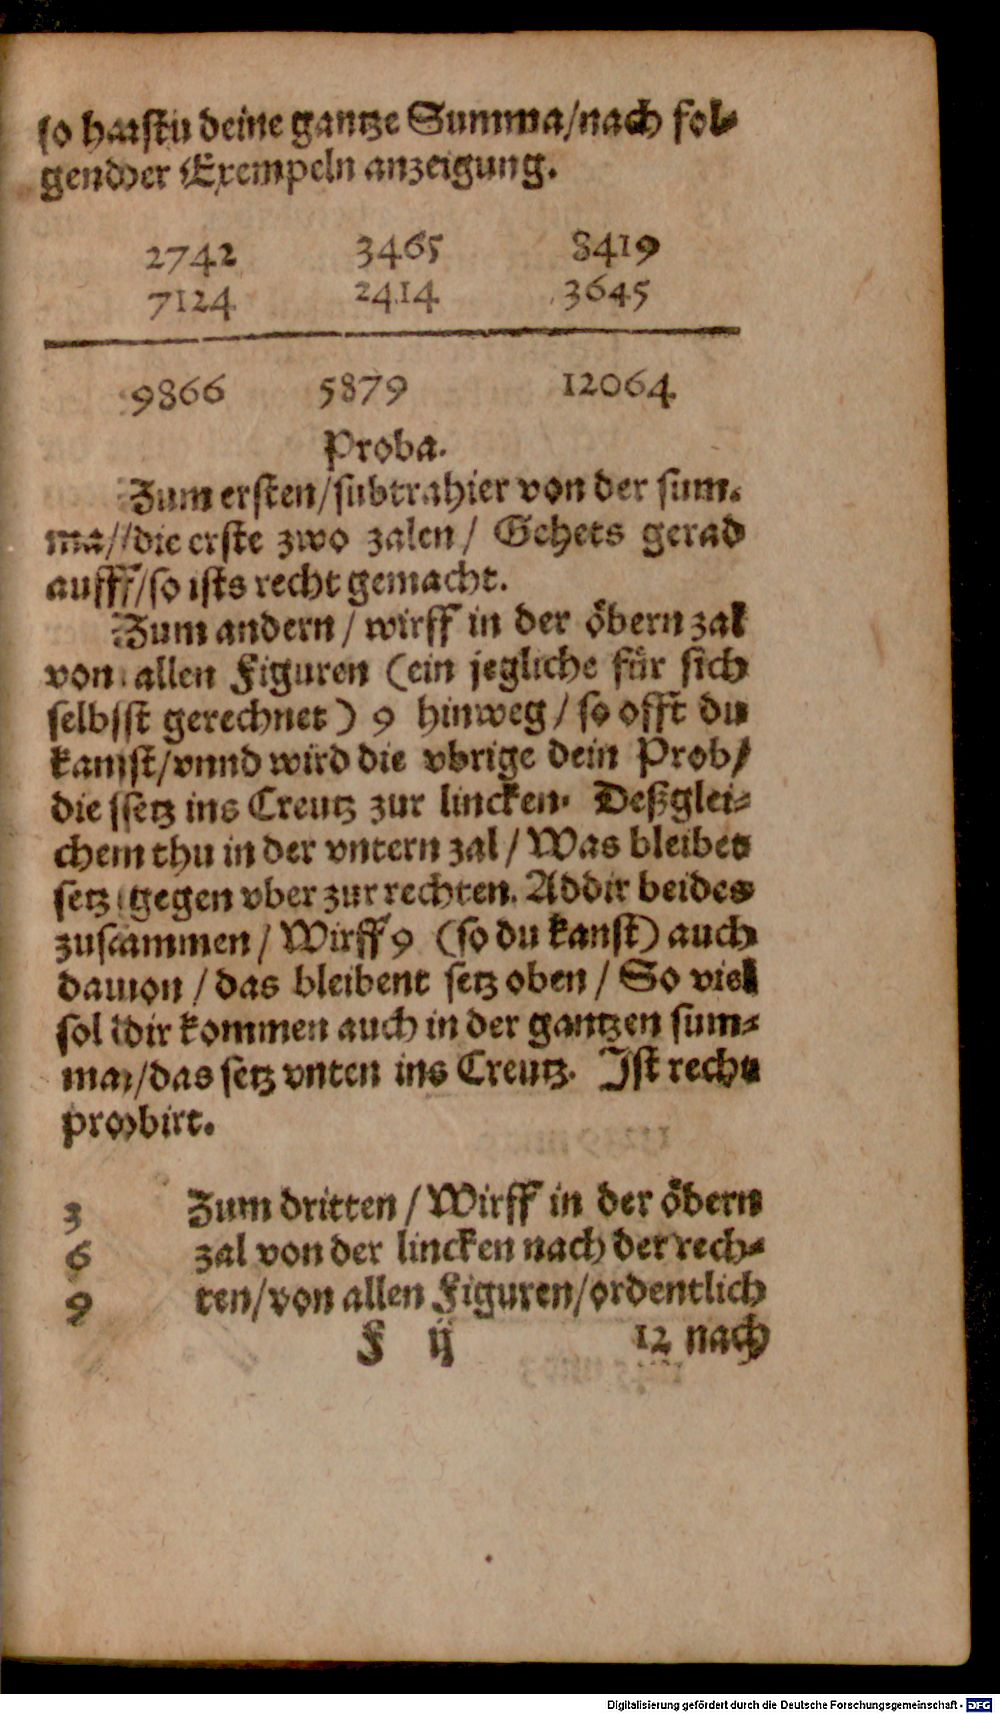 so hastu deine gantze Summa/nach fol-
gender Exempeln anzeigung.
2742 3465 8419
7124 2414 3645
9866 5879 12064
Proba.
Zum ersten/subtrahier von der sum-
ma/die erste zwo zalen/ Gehets gerad
auff/so ists recht gemacht.
Zum andern/ wirff in der öbern zal
von allen Figuren (ein jegliche für sich
selbst gerechnet) 9 hinweg/ so offt du
kanst/vnnd wird die vbrige dein Prob/
die setz ins Creutz zur lincken. Deßglei-
chem thu in der vntern zal/ Was bleibet
setz gegen vber zur rechten. Addir beides
zusammen/ Wirff 9 (so du kanst) auch
dauon/ das bleibent setz oben/ So viel
sol dir kommen auch in der gantzen sum-
ma/das setz vnten ins Creutz. Ist recht
probirt.
3 Zum dritten/ Wirff in der öbern
6 zal von der lincken nach der rech-
9 ten/von allen Figuren/ordentlich
F ij 12 nach
Digitalisierung gefördert durch die Deutsche Forschungsgemeinschaft - DFG